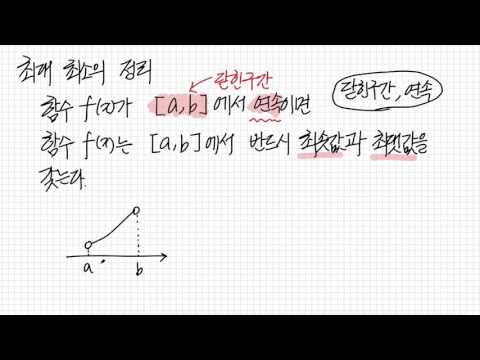 최대 최소의 정리
닫힌구간
함수 f(x)가 [a,b]에서 연속이면
닫힌구간, 연속
함수 f(x)는 [a,b]에서 반드시 최솟값과 최댓값을
갖는다.
a b